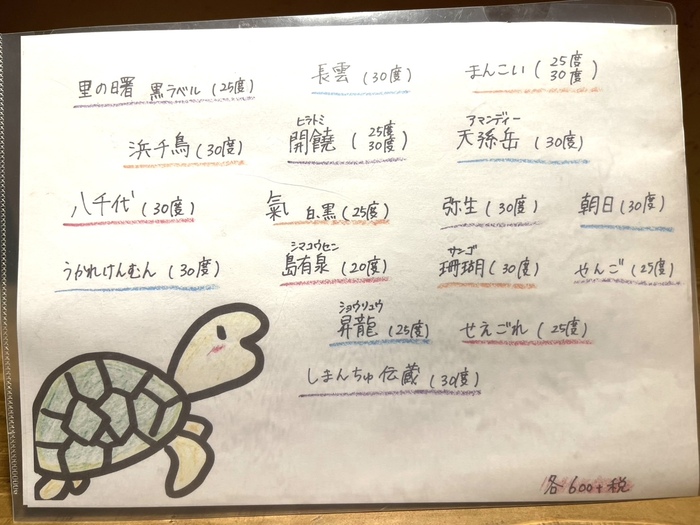 里の曙 黒ラベル (25度)
長雲 (30度)
まんこい (25度 30度)
浜千鳥 (30度)
ヒラトミ
開饒 (25度 30度)
アマンディー
天孫岳 (30度)
八千代 (30度)
氣 白.黒 (25度)
弥生 (30度)
朝日 (30度)
うかれけんむん (30度)
シマユウセン
島有泉 (20度)
サンゴ
珊瑚 (30度)
やんご (25度)
ショウリュウ
昇龍 (25度)
せえごれ (25度)
しまんちゅ伝蔵 (30度)
各600+税